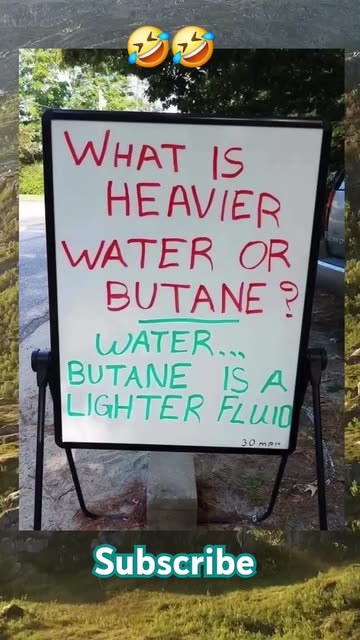 🤣🤣
WHAT IS
HEAVIER
WATER OR
BUTANE?
WATER...
BUTANE IS A
LIGHTER FLUID
30 MPH
Subscribe